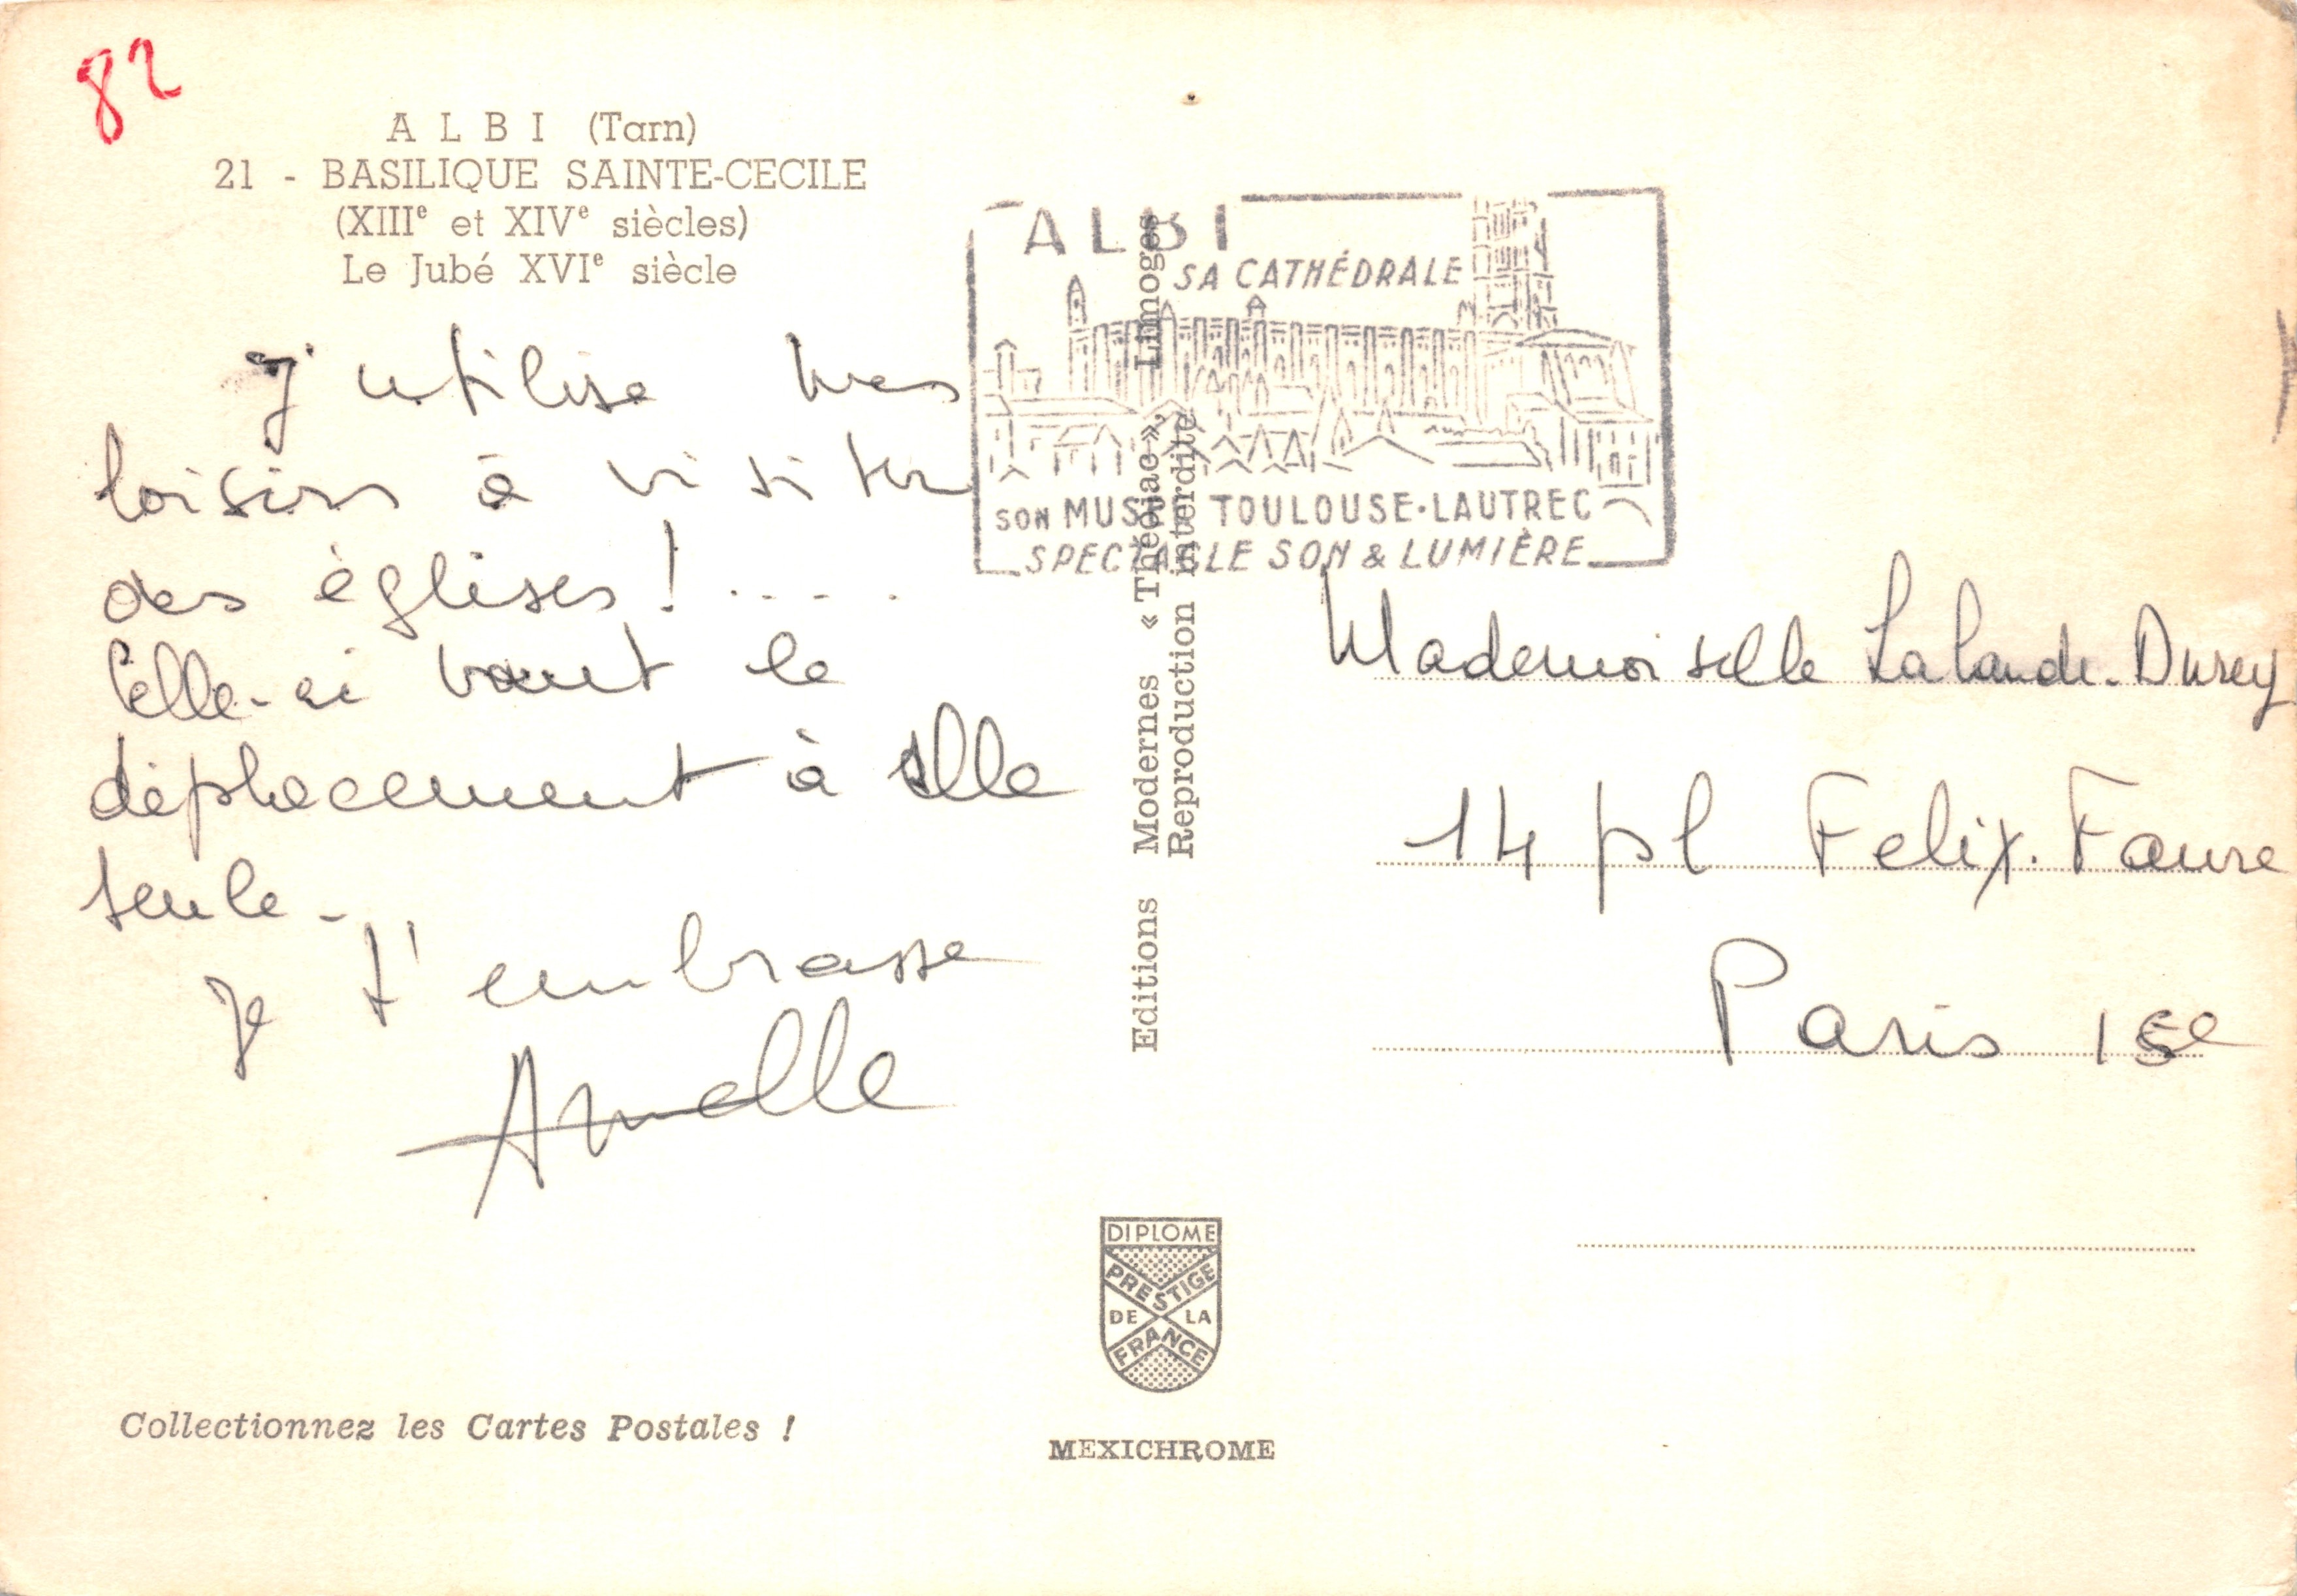 82
ALBI (Tarn)
21 - BASILIQUE SAINTE-CECILE
(XIIIe et XIVe siècles)
Le Jubé XVIe siècle
J'utilise mes
loisirs à visiter
des églises! .....
Celle-ci vaut le
déplacement à elle
seule -
Je t'embrasse
Armelle
Collectionnez les Cartes Postales !
ALBI
SA CATHÉDRALE
SON MUSÉE TOULOUSE-LAUTREC
SPECTACLE SON & LUMIÈRE
Editions Modernes « Théojac », Limoges
Reproduction interdite
DIPLOME
PRESTIGE
DE LA
FRANCE
MEXICHROME
Mademoiselle Lalande-Durey
14 pl Felix-Faure
Paris 15e